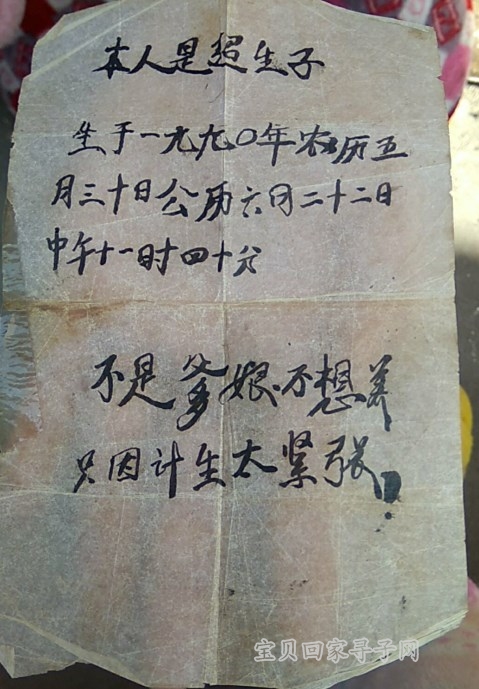 本人是超生子
生于一九九〇年农历五
月三十日公历六月二十二日
中午十一时十四十分
不是爹娘不想养
只因计生太紧张
宝贝回家寻子网